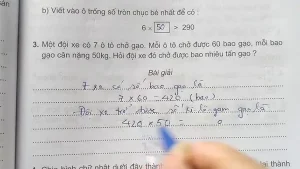 b) Viết vào ô trống số tròn chục bé nhất để có :
6 × 50 > 290
3. Một đội xe có 7 ô tô chở gạo. Mỗi ô tô chở được 60 bao gạo, mỗi bao
gạo cân nặng 50kg. Hỏi đội xe đó chở được bao nhiêu tấn gạo ?
Bài giải
7 xe có số bao gạo là
7 × 60 = 420 (bao)
Đội xe chở được số ki lô gam gạo là
420 × 50 =